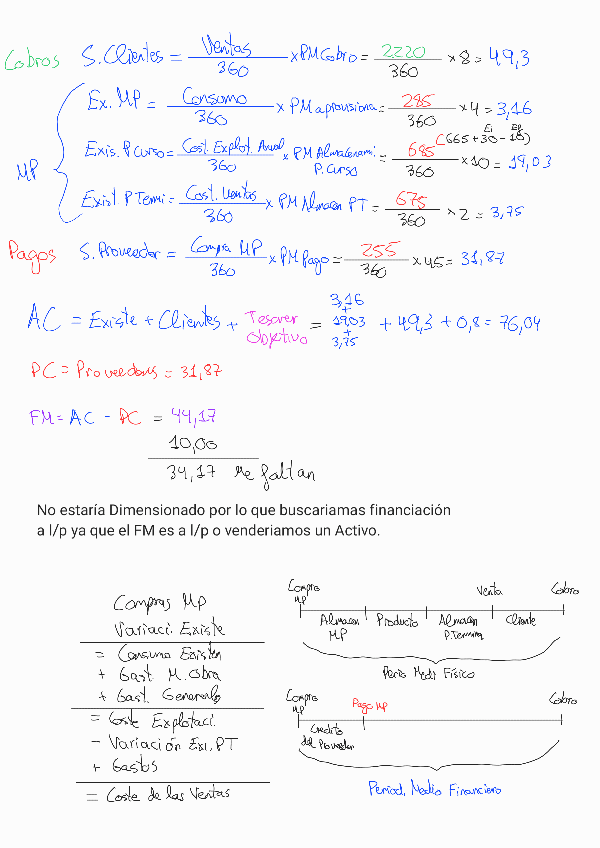 Cobros S. Clientes = Ventas / 360 x PM Cobro = 2220 / 360 x 8 = 49,3
MP
Ex. MP = Consumo / 360 x PM aprovisiona = 285 / 360 x 4 = 3,16
Exis. P Curso = Cost. Explot. Anual / 360 x PM Almacenami P. Curso = 685 / 360 x 10 = 19,03
(665 + 30 - 10)
Ei Ef
Exist P Termi = Cost. Ventas / 360 x PM Almacen PT = 675 / 360 x 2 = 3,75
Pagos S. Proveedor = Compra MP / 360 x PM Pago = 255 / 360 x 45 = 31,87
AC = Existe + Clientes + Tesorer Objetivo = 3,16 + 19,03 + 3,75 + 49,3 + 0,8 = 76,04
PC = Proveedores = 31,87
FM = AC - PC = 44,17
10,00
34,17 me faltan
No estaría Dimensionado por lo que buscariamas financiación
a l/p ya que el FM es a l/p o venderiamos un Activo.
Compras MP
Variaci. Existe
= Consumo Existen
+ Gast M. Obra
+ Gast. Generales
= Coste Explotaci.
- Variación Exi. PT
+ Gastos
= Coste de las Ventas
Compra MP Venta Cobro
Almacen MP Producto Almacen P. Termina Cliente
Perio Medi Físico
Compra MP Pago MP Cobro
Credito del Proveedor
Period. Medio Financiero